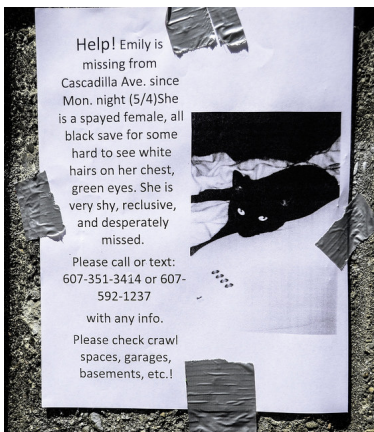 Help! Emily is
missing from
Cascadilla Ave. since
Mon. night (5/4)She
is a spayed female, all
black save for some
hard to see white
hairs on her chest,
green eyes. She is
very shy, reclusive,
and desperately
missed.
Please call or text:
607-351-3414 or 607-
592-1237
with any info.
Please check crawl
spaces, garages,
basements, etc.!